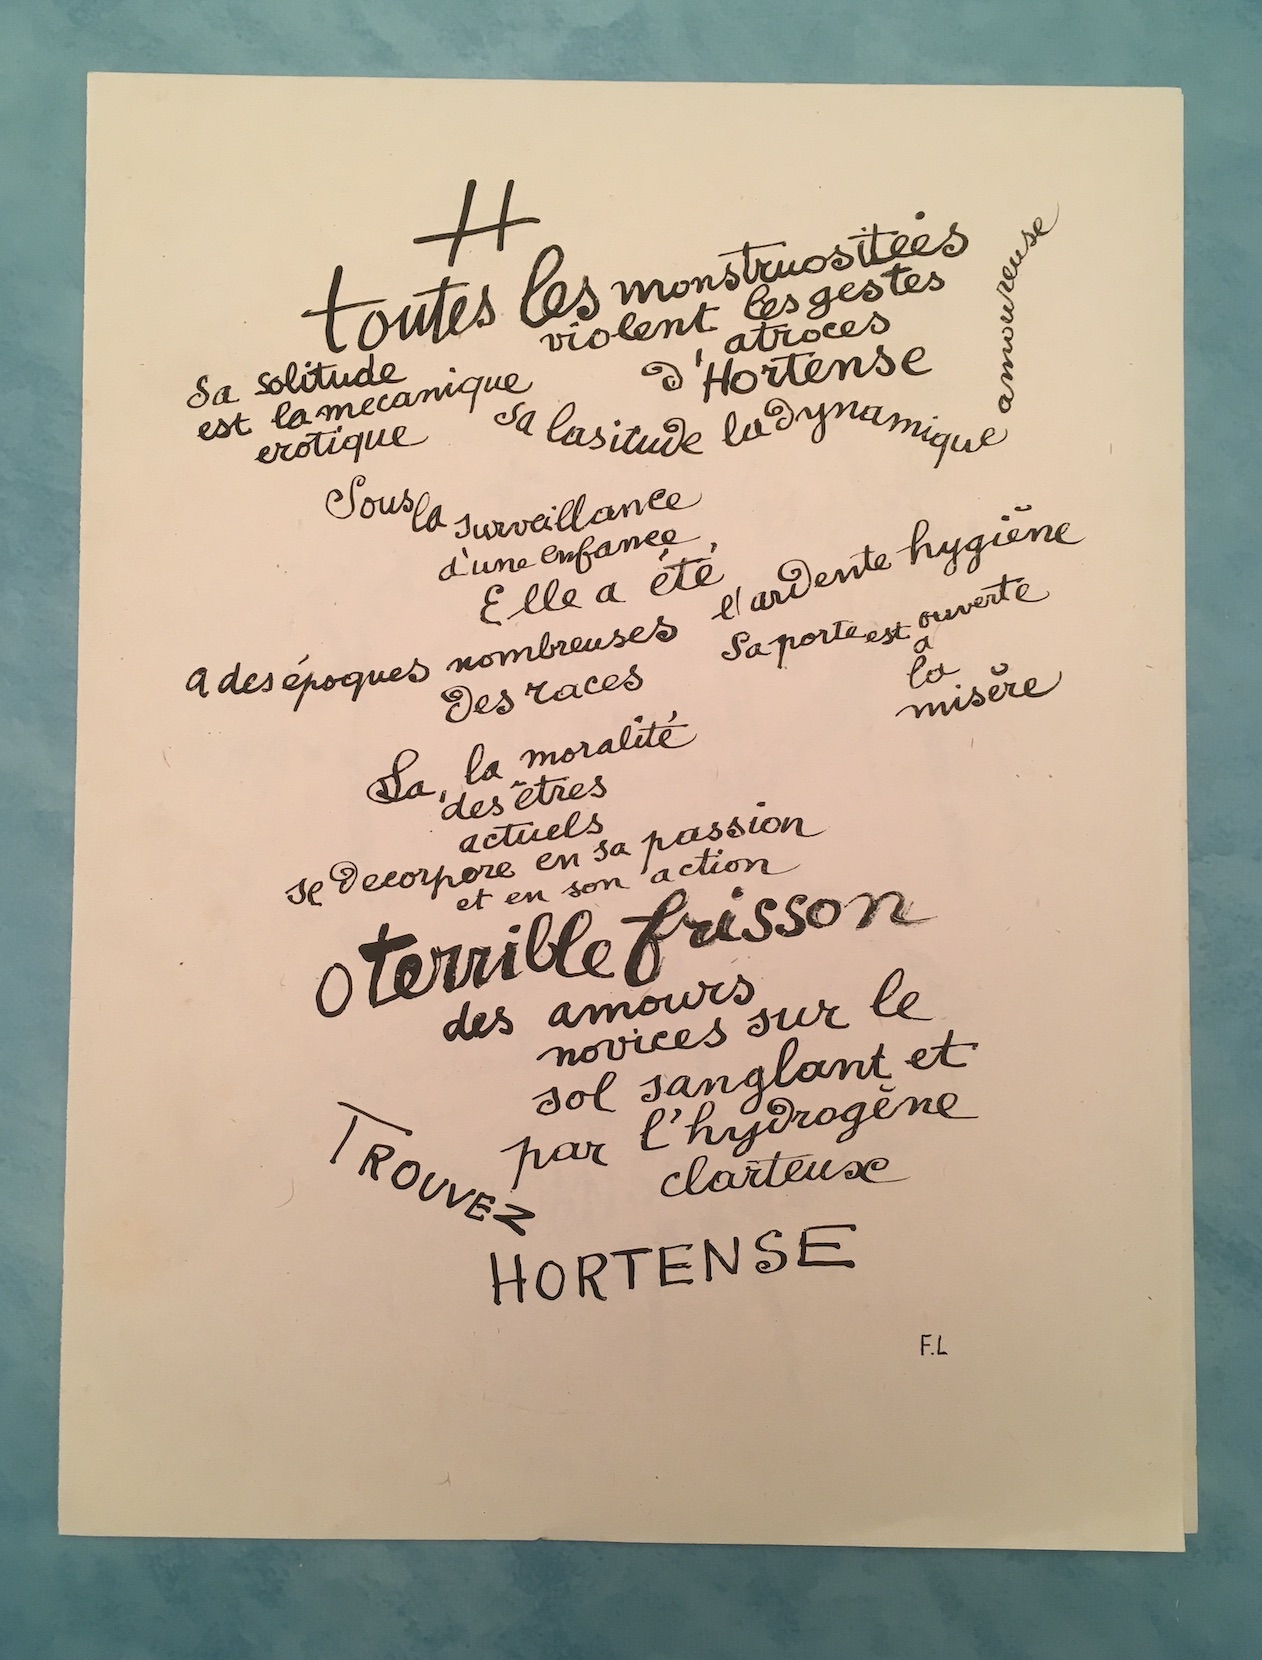 H
toutes les monstruositées
violent les gestes
atroces
d'Hortense
Sa solitude
est la mecanique
erotique
Sa lasitude la dynamique
amoureuse
Sous la surveillance
d'une enfance
Elle a été,
a des époques nombreuses
l'ardente hygiène
des races
Sa porte est ouverte
a
la
misère
La, la moralité
des êtres
actuels
se decorpore en sa passion
et en son action
O terrible frisson
des amours
novices sur le
sol sanglant et
par l'hydrogène
clarteuse
TROUVEZ
HORTENSE
F.L